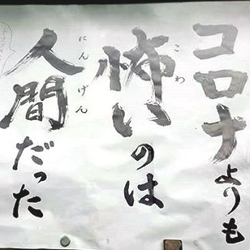 コロナよりも
怖いのは
人間だった
こわ
にんげん